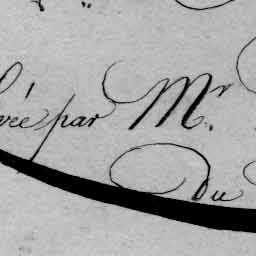 vée par Mr.
Du